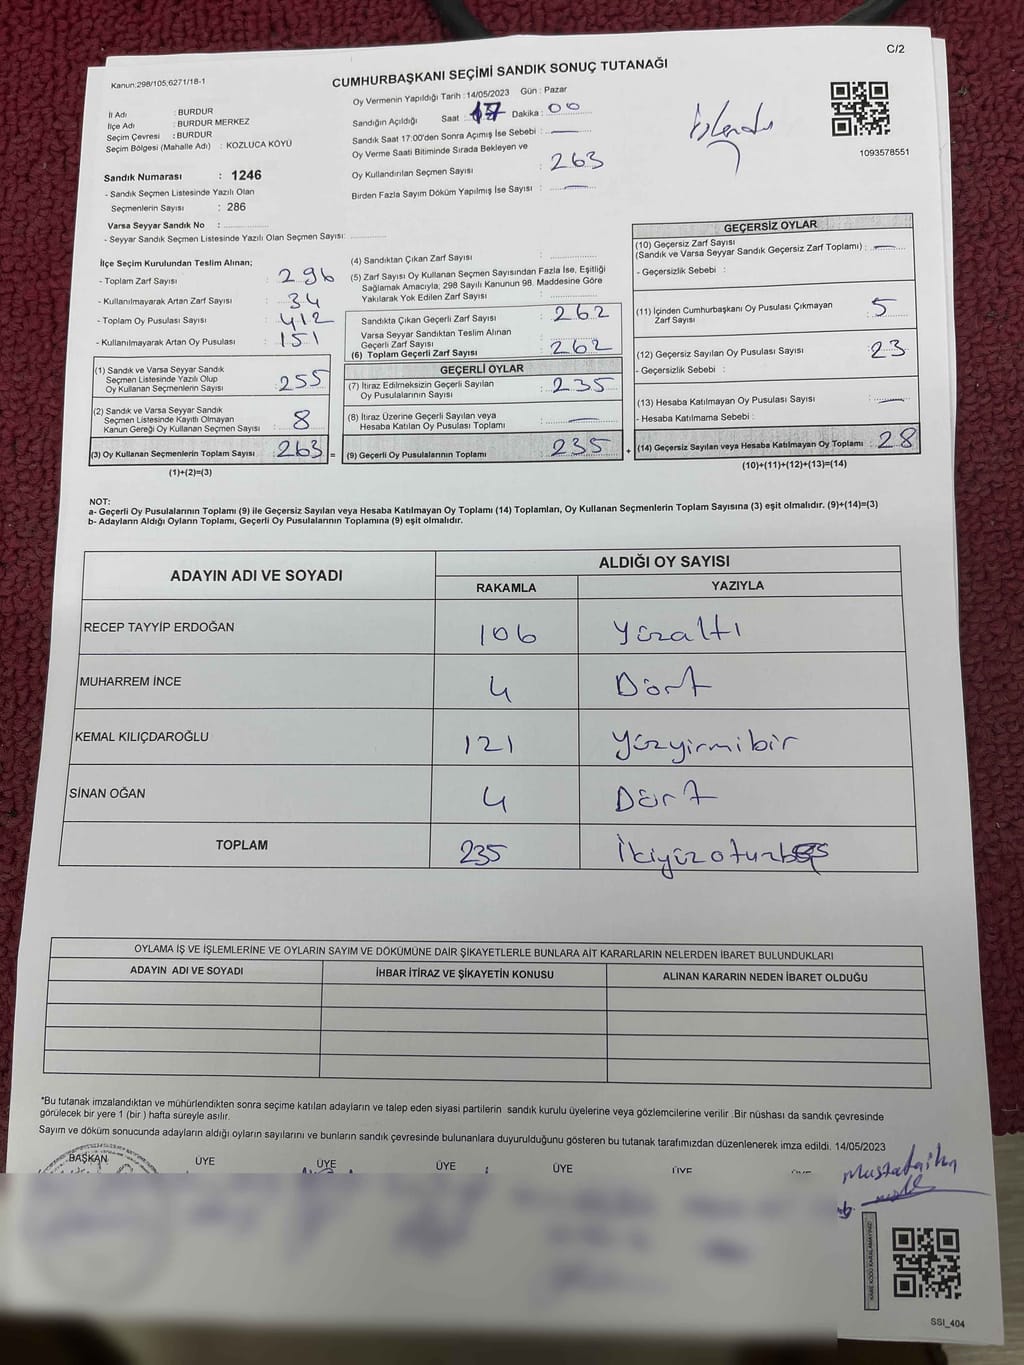 C/2
Kanun:298/105,6271/18-1
CUMHURBAŞKANI SEÇİMİ SANDIK SONUÇ TUTANAĞI
İl Adı : BURDUR
İlçe Adı : BURDUR MERKEZ
Seçim Çevresi : BURDUR
Seçim Bölgesi (Mahalle Adı) : KOZLUCA KÖYÜ
Sandık Numarası : 1246
- Sandık Seçmen Listesinde Yazılı Olan
Seçmenlerin Sayısı : 286
Varsa Seyyar Sandık No :
- Seyyar Sandık Seçmen Listesinde Yazılı Olan Seçmen Sayısı:
Oy Vermenin Yapıldığı Tarih :14/05/2023 Gün : Pazar
Sandığın Açıldığı Saat : 17 Dakika : 00
Sandık Saat 17:00'den Sonra Açılmış İse Sebebi : —
Oy Verme Saati Bitiminde Sırada Bekleyen ve
Oy Kullandırılan Seçmen Sayısı : 263
Birden Fazla Sayım Döküm Yapılmış İse Sayısı : —
İşlendi
1093578551
İlçe Seçim Kurulundan Teslim Alınan;
- Toplam Zarf Sayısı : 296
- Kullanılmayarak Artan Zarf Sayısı : 34
- Toplam Oy Pusulası Sayısı : 412
- Kullanılmayarak Artan Oy Pusulası : 151
(1) Sandık ve Varsa Seyyar Sandık
Seçmen Listesinde Yazılı Olup
Oy Kullanan Seçmenlerin Sayısı : 255
(2) Sandık ve Varsa Seyyar Sandık
Seçmen Listesinde Kayıtlı Olmayan
Kanun Gereği Oy Kullanan Seçmen Sayısı : 8
(3) Oy Kullanan Seçmenlerin Toplam Sayısı : 263 =
(1)+(2)=(3)
(4) Sandıktan Çıkan Zarf Sayısı :
(5) Zarf Sayısı Oy Kullanan Seçmen Sayısından Fazla İse, Eşitliği
Sağlamak Amacıyla; 298 Sayılı Kanunun 98. Maddesine Göre
Yakılarak Yok Edilen Zarf Sayısı :
Sandıkta Çıkan Geçerli Zarf Sayısı : 262
Varsa Seyyar Sandıktan Teslim Alınan
Geçerli Zarf Sayısı :
(6) Toplam Geçerli Zarf Sayısı : 262
GEÇERLİ OYLAR
(7) İtiraz Edilmeksizin Geçerli Sayılan
Oy Pusulalarının Sayısı : 235
(8) İtiraz Üzerine Geçerli Sayılan veya
Hesaba Katılan Oy Pusulası Toplamı : —
(9) Geçerli Oy Pusulalarının Toplamı : 235 +
GEÇERSİZ OYLAR
(10) Geçersiz Zarf Sayısı
(Sandık ve Varsa Seyyar Sandık Geçersiz Zarf Toplamı) : —
- Geçersizlik Sebebi :
(11) İçinden Cumhurbaşkanı Oy Pusulası Çıkmayan
Zarf Sayısı : 5
(12) Geçersiz Sayılan Oy Pusulası Sayısı : 23
- Geçersizlik Sebebi :
(13) Hesaba Katılmayan Oy Pusulası Sayısı : —
- Hesaba Katılmama Sebebi :
(14) Geçersiz Sayılan veya Hesaba Katılmayan Oy Toplamı : 28
(10)+(11)+(12)+(13)=(14)
NOT:
a- Geçerli Oy Pusulalarının Toplamı (9) ile Geçersiz Sayılan veya Hesaba Katılmayan Oy Toplamı (14) Toplamları, Oy Kullanan Seçmenlerin Toplam Sayısına (3) eşit olmalıdır. (9)+(14)=(3)
b- Adayların Aldığı Oyların Toplamı, Geçerli Oy Pusulalarının Toplamına (9) eşit olmalıdır.
ADAYIN ADI VE SOYADI
ALDIĞI OY SAYISI
RAKAMLA YAZIYLA
RECEP TAYYİP ERDOĞAN 106 Yüzaltı
MUHARREM İNCE 4 Dört
KEMAL KILIÇDAROĞLU 121 Yüzyirmibir
SİNAN OĞAN 4 Dört
TOPLAM 235 İkiyüzotuzbeş
OYLAMA İŞ VE İŞLEMLERİNE VE OYLARIN SAYIM VE DÖKÜMÜNE DAİR ŞİKAYETLERLE BUNLARA AİT KARARLARIN NELERDEN İBARET BULUNDUKLARI
ADAYIN ADI VE SOYADI İHBAR İTİRAZ VE ŞİKAYETİN KONUSU ALINAN KARARIN NEDEN İBARET OLDUĞU
*Bu tutanak imzalandıktan ve mühürlendikten sonra seçime katılan adayların ve talep eden siyasi partilerin sandık kurulu üyelerine veya gözlemcilerine verilir .Bir nüshası da sandık çevresinde
görülecek bir yere 1 (bir ) hafta süreyle asılır.
Sayım ve döküm sonucunda adayların aldığı oyların sayılarını ve bunların sandık çevresinde bulunanlara duyurulduğunu gösteren bu tutanak tarafımızdan düzenlenerek imza edildi. 14/05/2023
BAŞKAN ÜYE ÜYE ÜYE ÜYE ÜYE
SSI_404